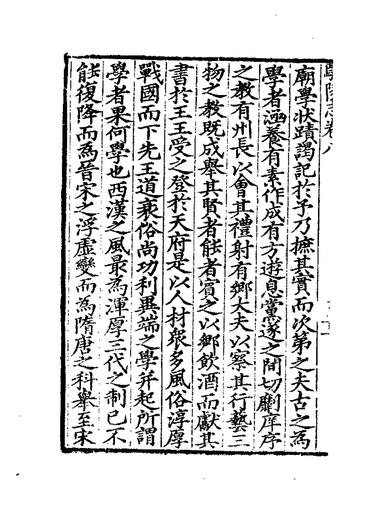 廟學狀蹟謁記於予乃摭其實而次第之夫古之為
學者涵養有素作成有方遊息黨遂之間切劘庠序
之教有州長以會其禮射有鄉大夫以察其行藝三
物之教既成舉其賢者能者賓之以鄉飲酒而獻其
書於王王受之登於天府是以人材衆多風俗淳厚
戰國而下先王道衰俗尚功利異端之學並起所謂
學者果何學也西漢之風最為渾厚三代之制已不
能復降而為晉宋之浮虛變而為隋唐之科舉至宋